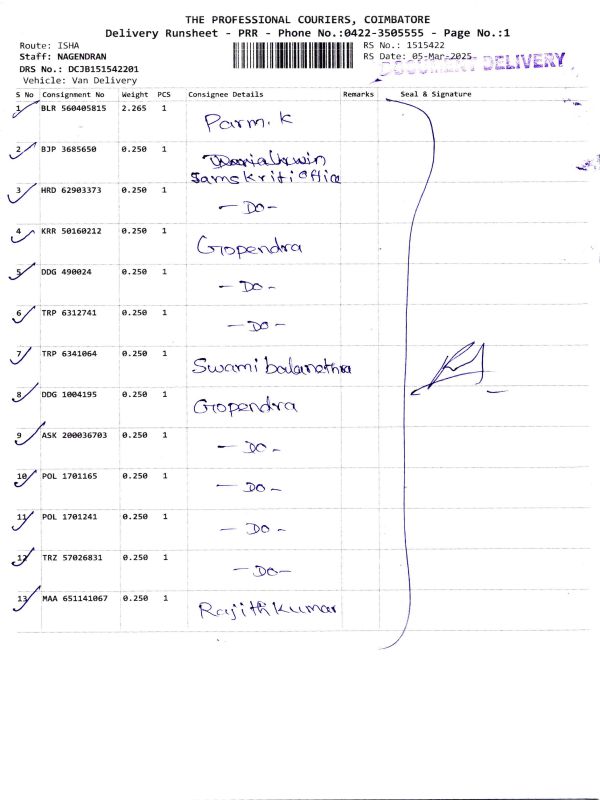 THE PROFESSIONAL COURIERS, COIMBATORE
Delivery Runsheet - PRR - Phone No.:0422-3505555 - Page No.:1
Route: ISHA
RS No.: 1515422
Staff: NAGENDRAN
RS Date: 05-Mar-2025
DRS No.: DCJB151542201
DOCUMENT DELIVERY
Vehicle: Van Delivery
S No Consignment No Weight PCS Consignee Details Remarks Seal & Signature
1 BLR 560405815 2.265 1 Parm. K
2 BJP 3685650 0.250 1
Samskriti office
3 HRD 62903373 0.250 1 - Do -
4 KRR 50160212 0.250 1 Gopendra
5 DDG 490024 0.250 1 - Do -
6 TRP 6312741 0.250 1 - Do -
7 TRP 6341064 0.250 1 Swami balanethra
8 DDG 1004195 0.250 1 Gopendra
9 ASK 200036703 0.250 1 - Do -
10 POL 1701165 0.250 1 - Do -
11 POL 1701241 0.250 1 - Do -
12 TRZ 57026831 0.250 1 - Do -
13 MAA 651141067 0.250 1 Rajith Kumar